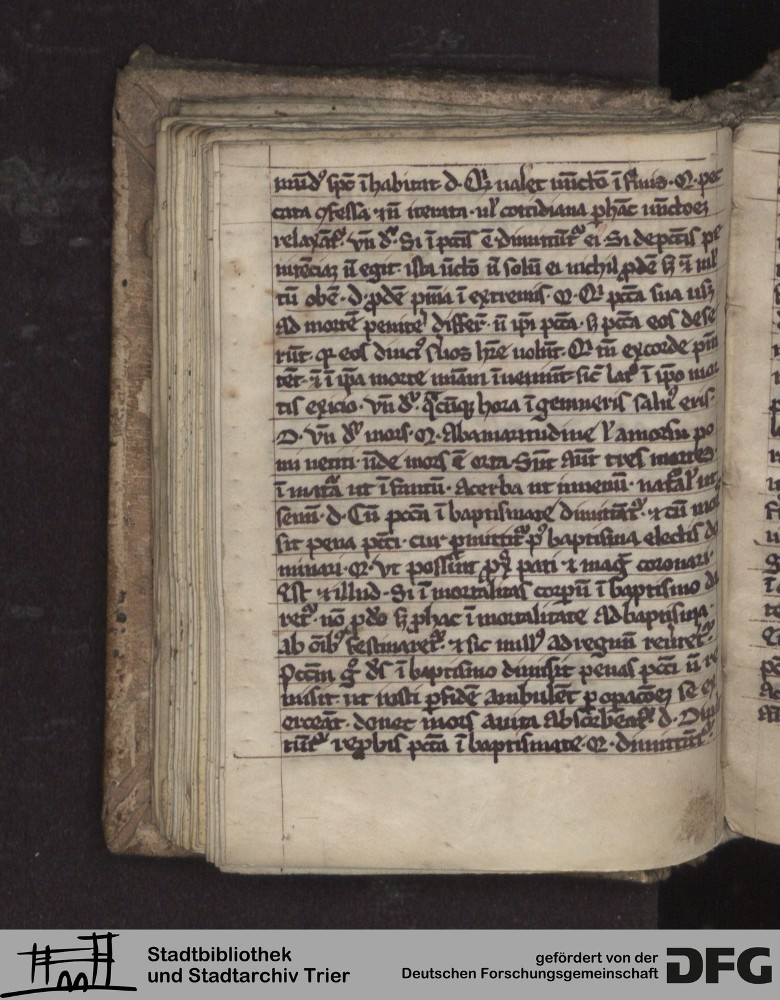 mūdꝰ sp̄c īhabitat d. Q̄ꝫ ualet ūnctō ī firmis. ꝳ. pec
cata ꝯfessa ⁊ n̄ iterata ul̓ cottidiana ꝑ hāc ūnctōeꝫ
relaxāt᷑. vn̄ d᷑. Si ī pctīs ē dimittūt᷑ ei Si de pctīs pe
nitēciaꝫ n̄ egit ista ūctō n̄ solū ei nichil ꝓdē sꝫ
tū obē. d. ꝓdē pn̄ia ī extremis. ꝳ. Q̄ pcc̄a sua usqꝫ
ad mortē penitē differt n̄ ip̄i pcc̄a. sꝫ pcc̄a eos dese
rūt. qꝛ eos diuciꝰ suos hr̄e uolūt. tn̄ ex corde pn̄i
tēt ī ip̄a morte mīam īueniūt sic̄ lat᷑ ī ip̄o mor
tis exicio. vn̄ d᷑. q̄cūqꝫ hora īgemueris saluꝰ eris.
D. vn̄ d᷑ mors. ꝳ. Ab amaritudine l̓ a morsu po
mi uetiti. ūde mors ē orta. Sūt aūt tres mortes.
ī mat᷑a ut īfantū. Acerba ut iuuenū. nat᷑al̓ ut
senū. d. Cū pcc̄a ī baptismate dimittāt᷑. ⁊ cū mors
sit pena pcc̄i. cur ꝑmittit᷑ pꝰ baptisma electis do
minari. ꝳ. vt possint pati ⁊ mag᷑ coronari.
Est ⁊ illud. Si īmortalitas corpū ī baptismo da
ret᷑. nō sꝫ ꝑ hāc īmortalitatē ad baptisma
ab oīb᷒ festinaret᷑. ⁊ sic nullꝰ ad regnū rediret.
Pcc̄m g̊ ds̄ ī baptismo dimisit penas pcc̄i n̄ re
misit ut iusti ꝑ fidē ambulēt ꝑ oꝑacōeꝫ se ex
erceāt. donec mors a uita absorbeat᷑. d. Dimit
tūt᷑ reꝓbis pcc̄a ī baptismate. ꝳ. dimittūt᷑
Stadtbibliothek
und Stadtarchiv Trier
gefördert von der
Deutschen Forschungsgemeinschaft
DFG